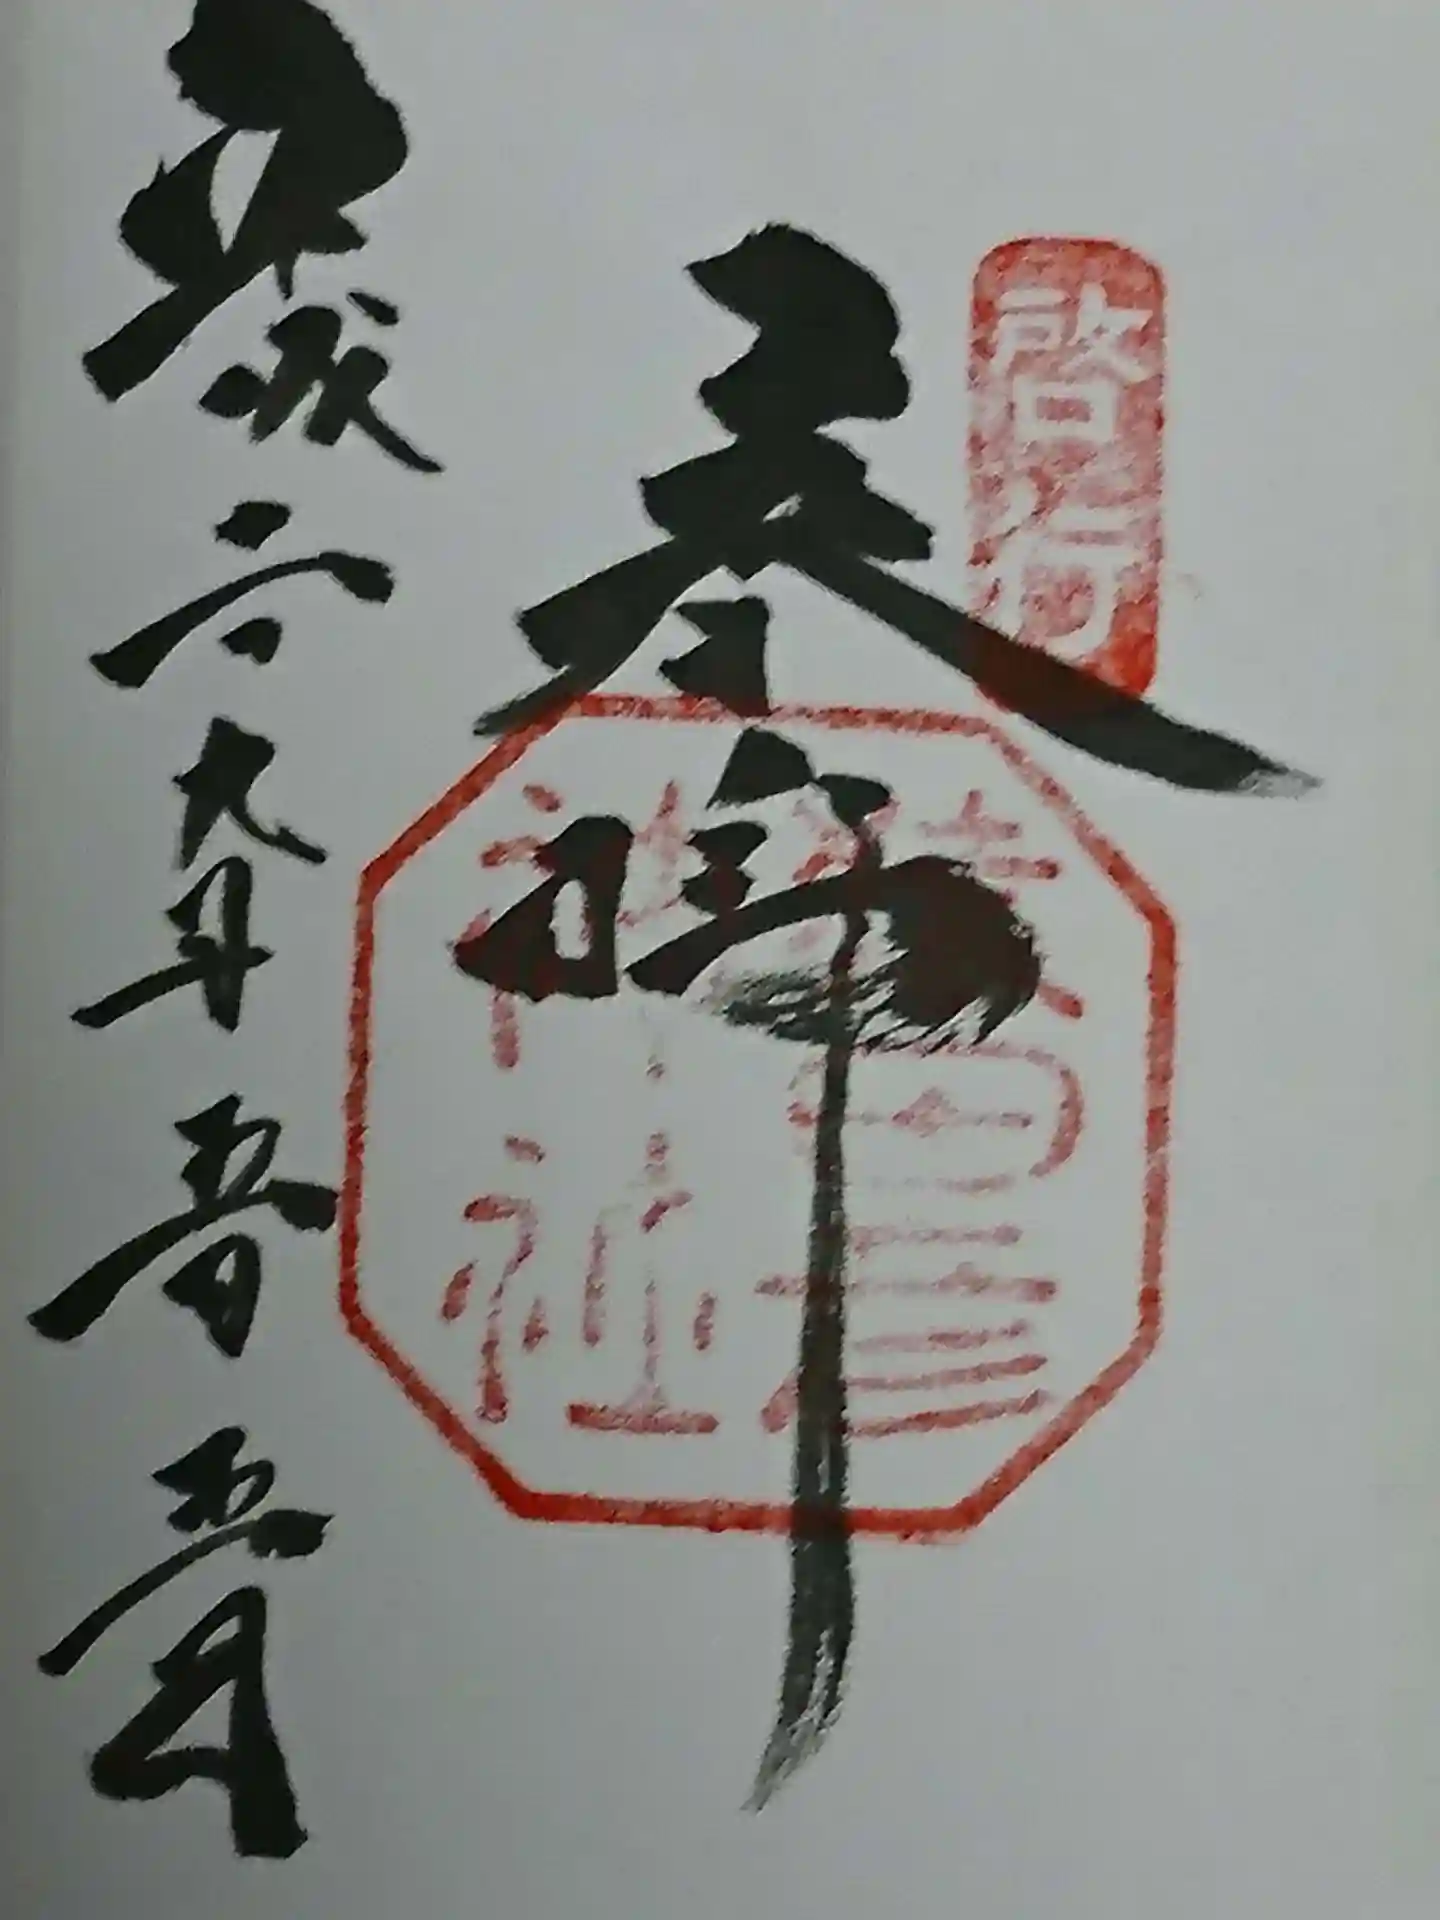 啓行
奉拝
神社
平成二十九年五月五日